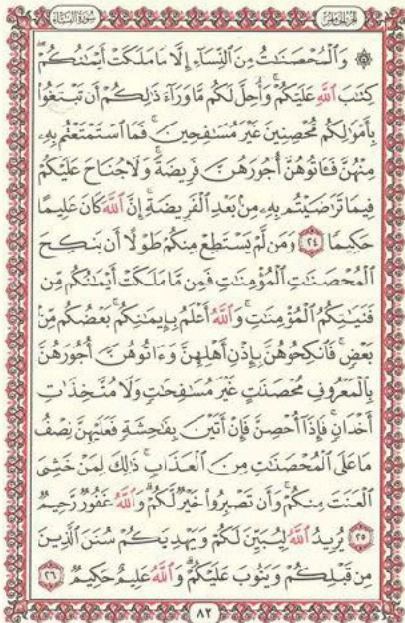 الجزء الخامس
سورة النساء
۞ وَٱلْمُحْصَنَٰتُ مِنَ ٱلنِّسَآءِ إِلَّا مَا مَلَكَتْ أَيْمَٰنُكُمْ ۖ
كِتَٰبَ ٱللَّهِ عَلَيْكُمْ ۚ وَأُحِلَّ لَكُم مَّا وَرَآءَ ذَٰلِكُمْ أَن تَبْتَغُوا۟
بِأَمْوَٰلِكُم مُّحْصِنِينَ غَيْرَ مُسَٰفِحِينَ ۚ فَمَا ٱسْتَمْتَعْتُم بِهِۦ
مِنْهُنَّ فَـَٔاتُوهُنَّ أُجُورَهُنَّ فَرِيضَةً ۚ وَلَا جُنَاحَ عَلَيْكُمْ
فِيمَا تَرَٰضَيْتُم بِهِۦ مِنۢ بَعْدِ ٱلْفَرِيضَةِ ۚ إِنَّ ٱللَّهَ كَانَ عَلِيمًا
حَكِيمًا ٢٤ وَمَن لَّمْ يَسْتَطِعْ مِنكُمْ طَوْلًا أَن يَنكِحَ
ٱلْمُحْصَنَٰتِ ٱلْمُؤْمِنَٰتِ فَمِن مَّا مَلَكَتْ أَيْمَٰنُكُم مِّن
فَتَيَٰتِكُمُ ٱلْمُؤْمِنَٰتِ ۚ وَٱللَّهُ أَعْلَمُ بِإِيمَٰنِكُم ۚ بَعْضُكُم مِّنۢ
بَعْضٍ ۚ فَٱنكِحُوهُنَّ بِإِذْنِ أَهْلِهِنَّ وَءَاتُوهُنَّ أُجُورَهُنَّ
بِٱلْمَعْرُوفِ مُحْصَنَٰتٍ غَيْرَ مُسَٰفِحَٰتٍ وَلَا مُتَّخِذَٰتِ
أَخْدَانٍ ۚ فَإِذَآ أُحْصِنَّ فَإِنْ أَتَيْنَ بِفَٰحِشَةٍ فَعَلَيْهِنَّ نِصْفُ
مَا عَلَى ٱلْمُحْصَنَٰتِ مِنَ ٱلْعَذَابِ ۚ ذَٰلِكَ لِمَنْ خَشِىَ
ٱلْعَنَتَ مِنكُمْ ۚ وَأَن تَصْبِرُوا۟ خَيْرٌ لَّكُمْ ۗ وَٱللَّهُ غَفُورٌ رَّحِيمٌ
٢٥ يُرِيدُ ٱللَّهُ لِيُبَيِّنَ لَكُمْ وَيَهْدِيَكُمْ سُنَنَ ٱلَّذِينَ
مِن قَبْلِكُمْ وَيَتُوبَ عَلَيْكُمْ ۗ وَٱللَّهُ عَلِيمٌ حَكِيمٌ ٢٦
٨٢